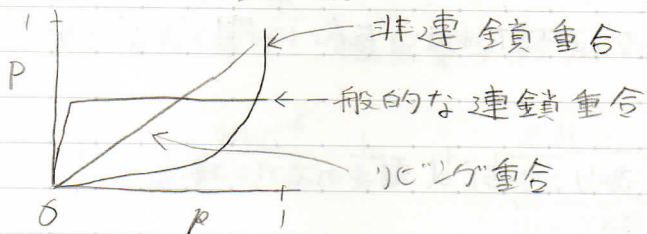 1
非連鎖重合
P
一般的な連鎖重合
リビング重合
0
p
1